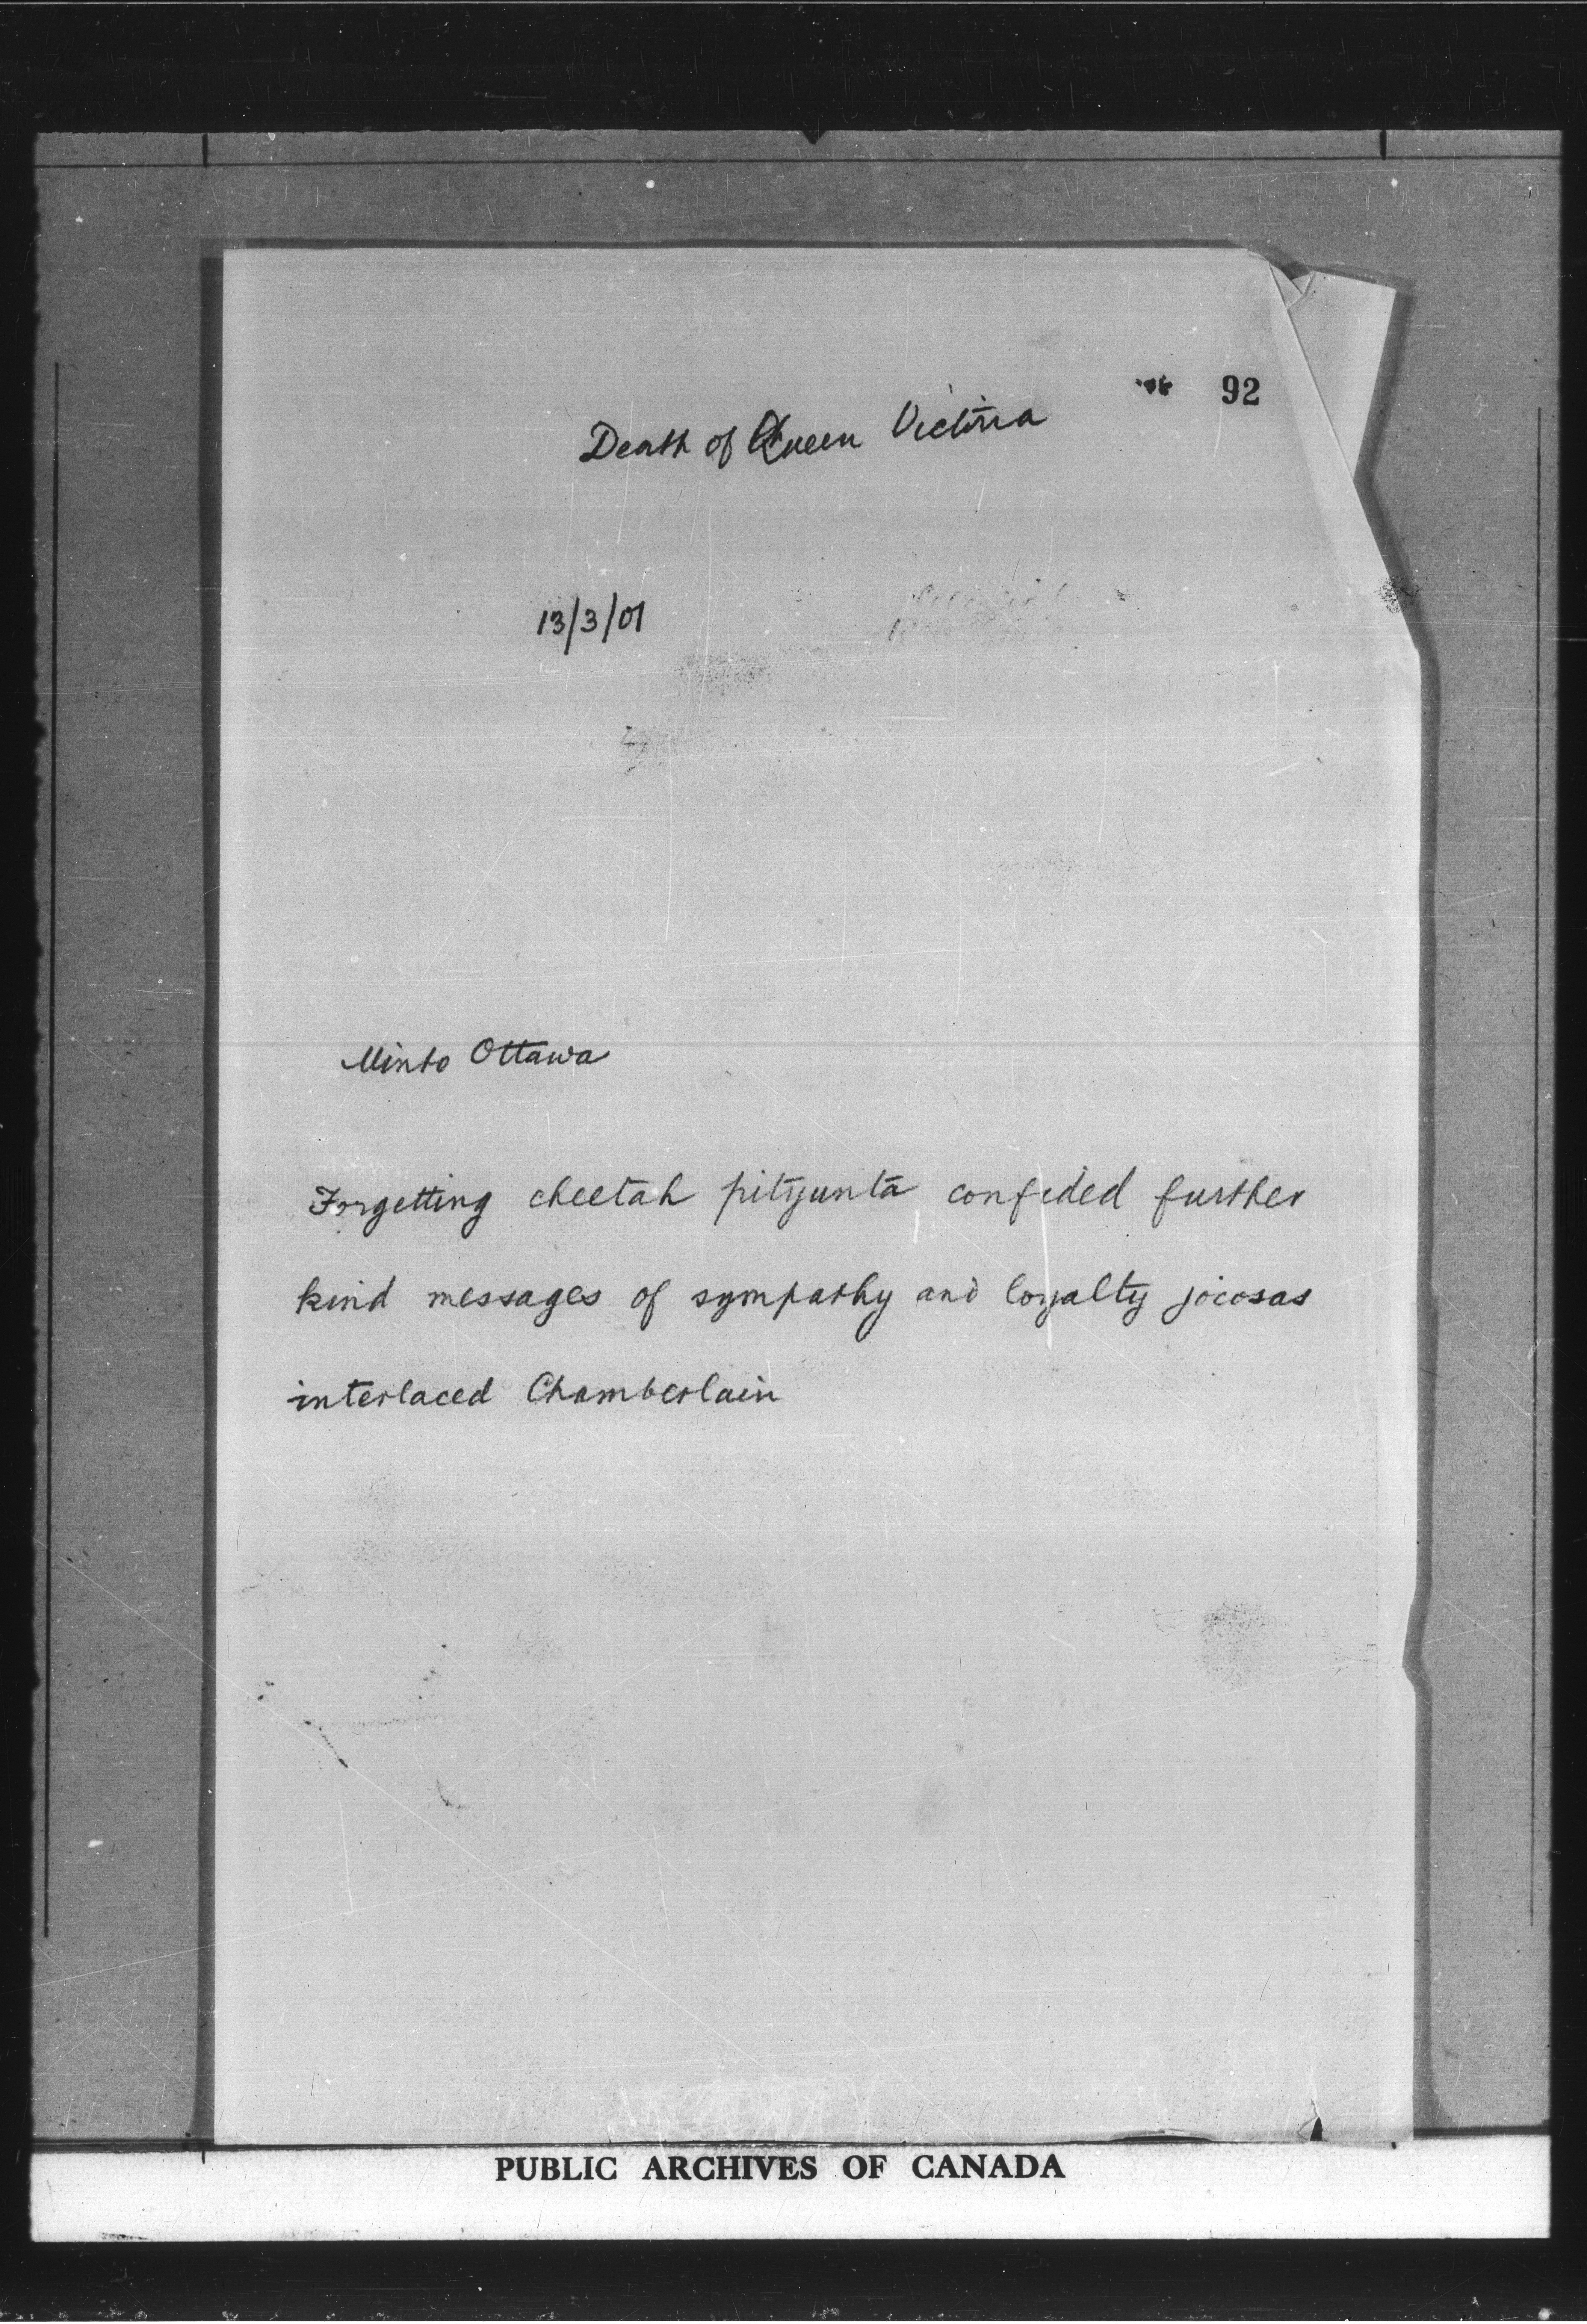 92
Death of Queen Victoria
13/3/01
Minto Ottawa
Forgetting cheetah pityunta confided further
kind messages of sympathy and loyalty jocosas
interlaced Chamberlain
PUBLIC ARCHIVES OF CANADA